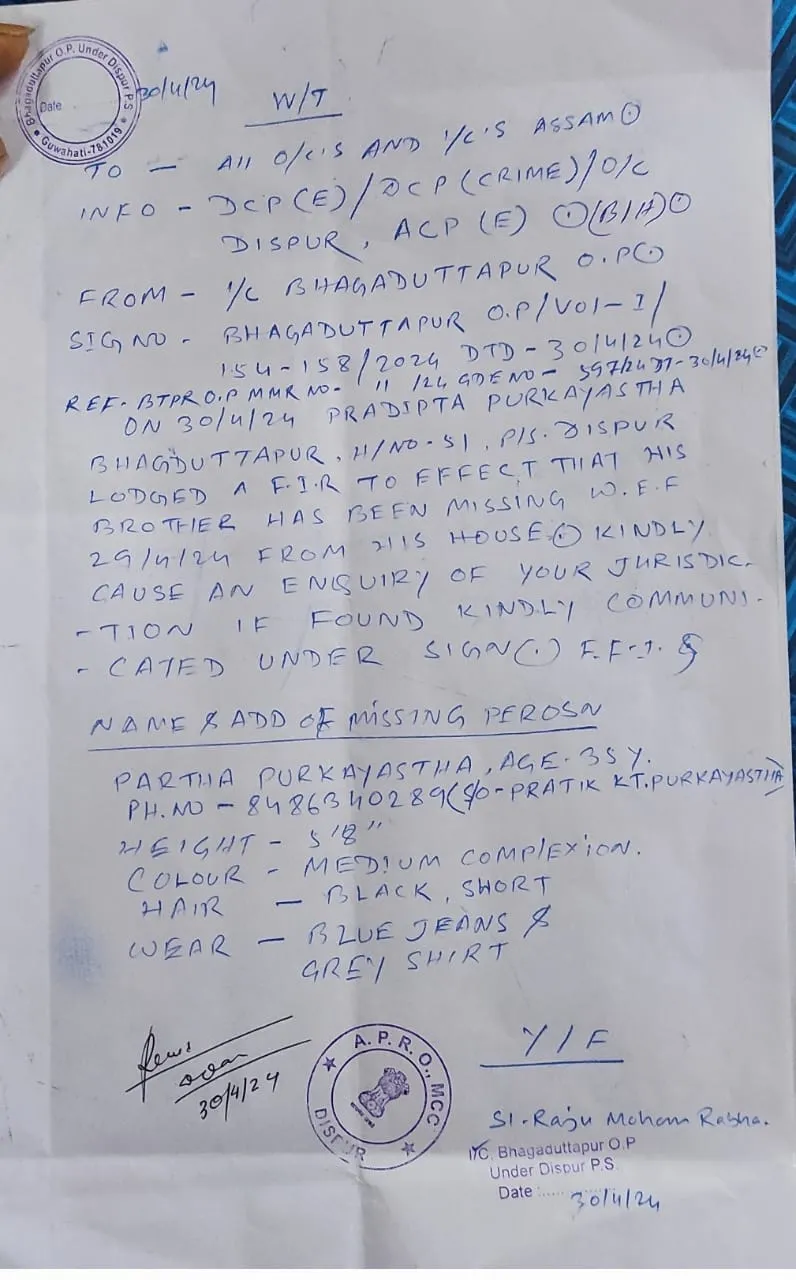 Bhagaduttapur O.P. Under Dispur P.S
Date
Guwahati-781019
30/4/24
W/T
TO — All O/C'S AND I/C'S ASSAM⊙
INFO - DCP(E)/DCP(CRIME)/O/C
DISPUR, ACP (E) ⊙(B/H)⊙
FROM - I/C BHAGADUTTAPUR O.P⊙
SIG NO - BHAGADUTTAPUR O.P/VOl-I/
154-158/2024 DTD-30/4/24⊙
REF- BTPR O.P MMR NO- 11/24 GDE NO- 597/24 DT-30/4/24⊙
ON 30/4/24 PRADIPTA PURKAYASTHA
BHAGDUTTAPUR, H/NO-51, P/S. DISPUR
LODGED A F.I.R TO EFFECT THAT HIS
BROTHER HAS BEEN MISSING W.E.F
29/4/24 FROM HIS HOUSE⊙ KINDLY
CAUSE AN ENQUIRY OF YOUR JURISDIC-
-TION IF FOUND KINDLY COMMUNI-
-CATED UNDER SIGN(.) F.F.I.
NAME & ADD OF MISSING PEROSN
PARTHA PURKAYASTHA, AGE-35 Y.
PH.NO - 8486340289(S/O-PRATIK KT.PURKAYASTHA)
HEIGHT - 5'8"
COLOUR - MEDIUM COMPlEXION.
HAIR — BLACK, SHORT
WEAR — BLUE JEANS &
GREY SHIRT
30/4/24
A. P. R. O., MCC
DISPUR
Y/F
SI-Raju Moham Rabha.
I/C, Bhagaduttapur O.P
Under Dispur P.S.
Date :..... 30/4/24